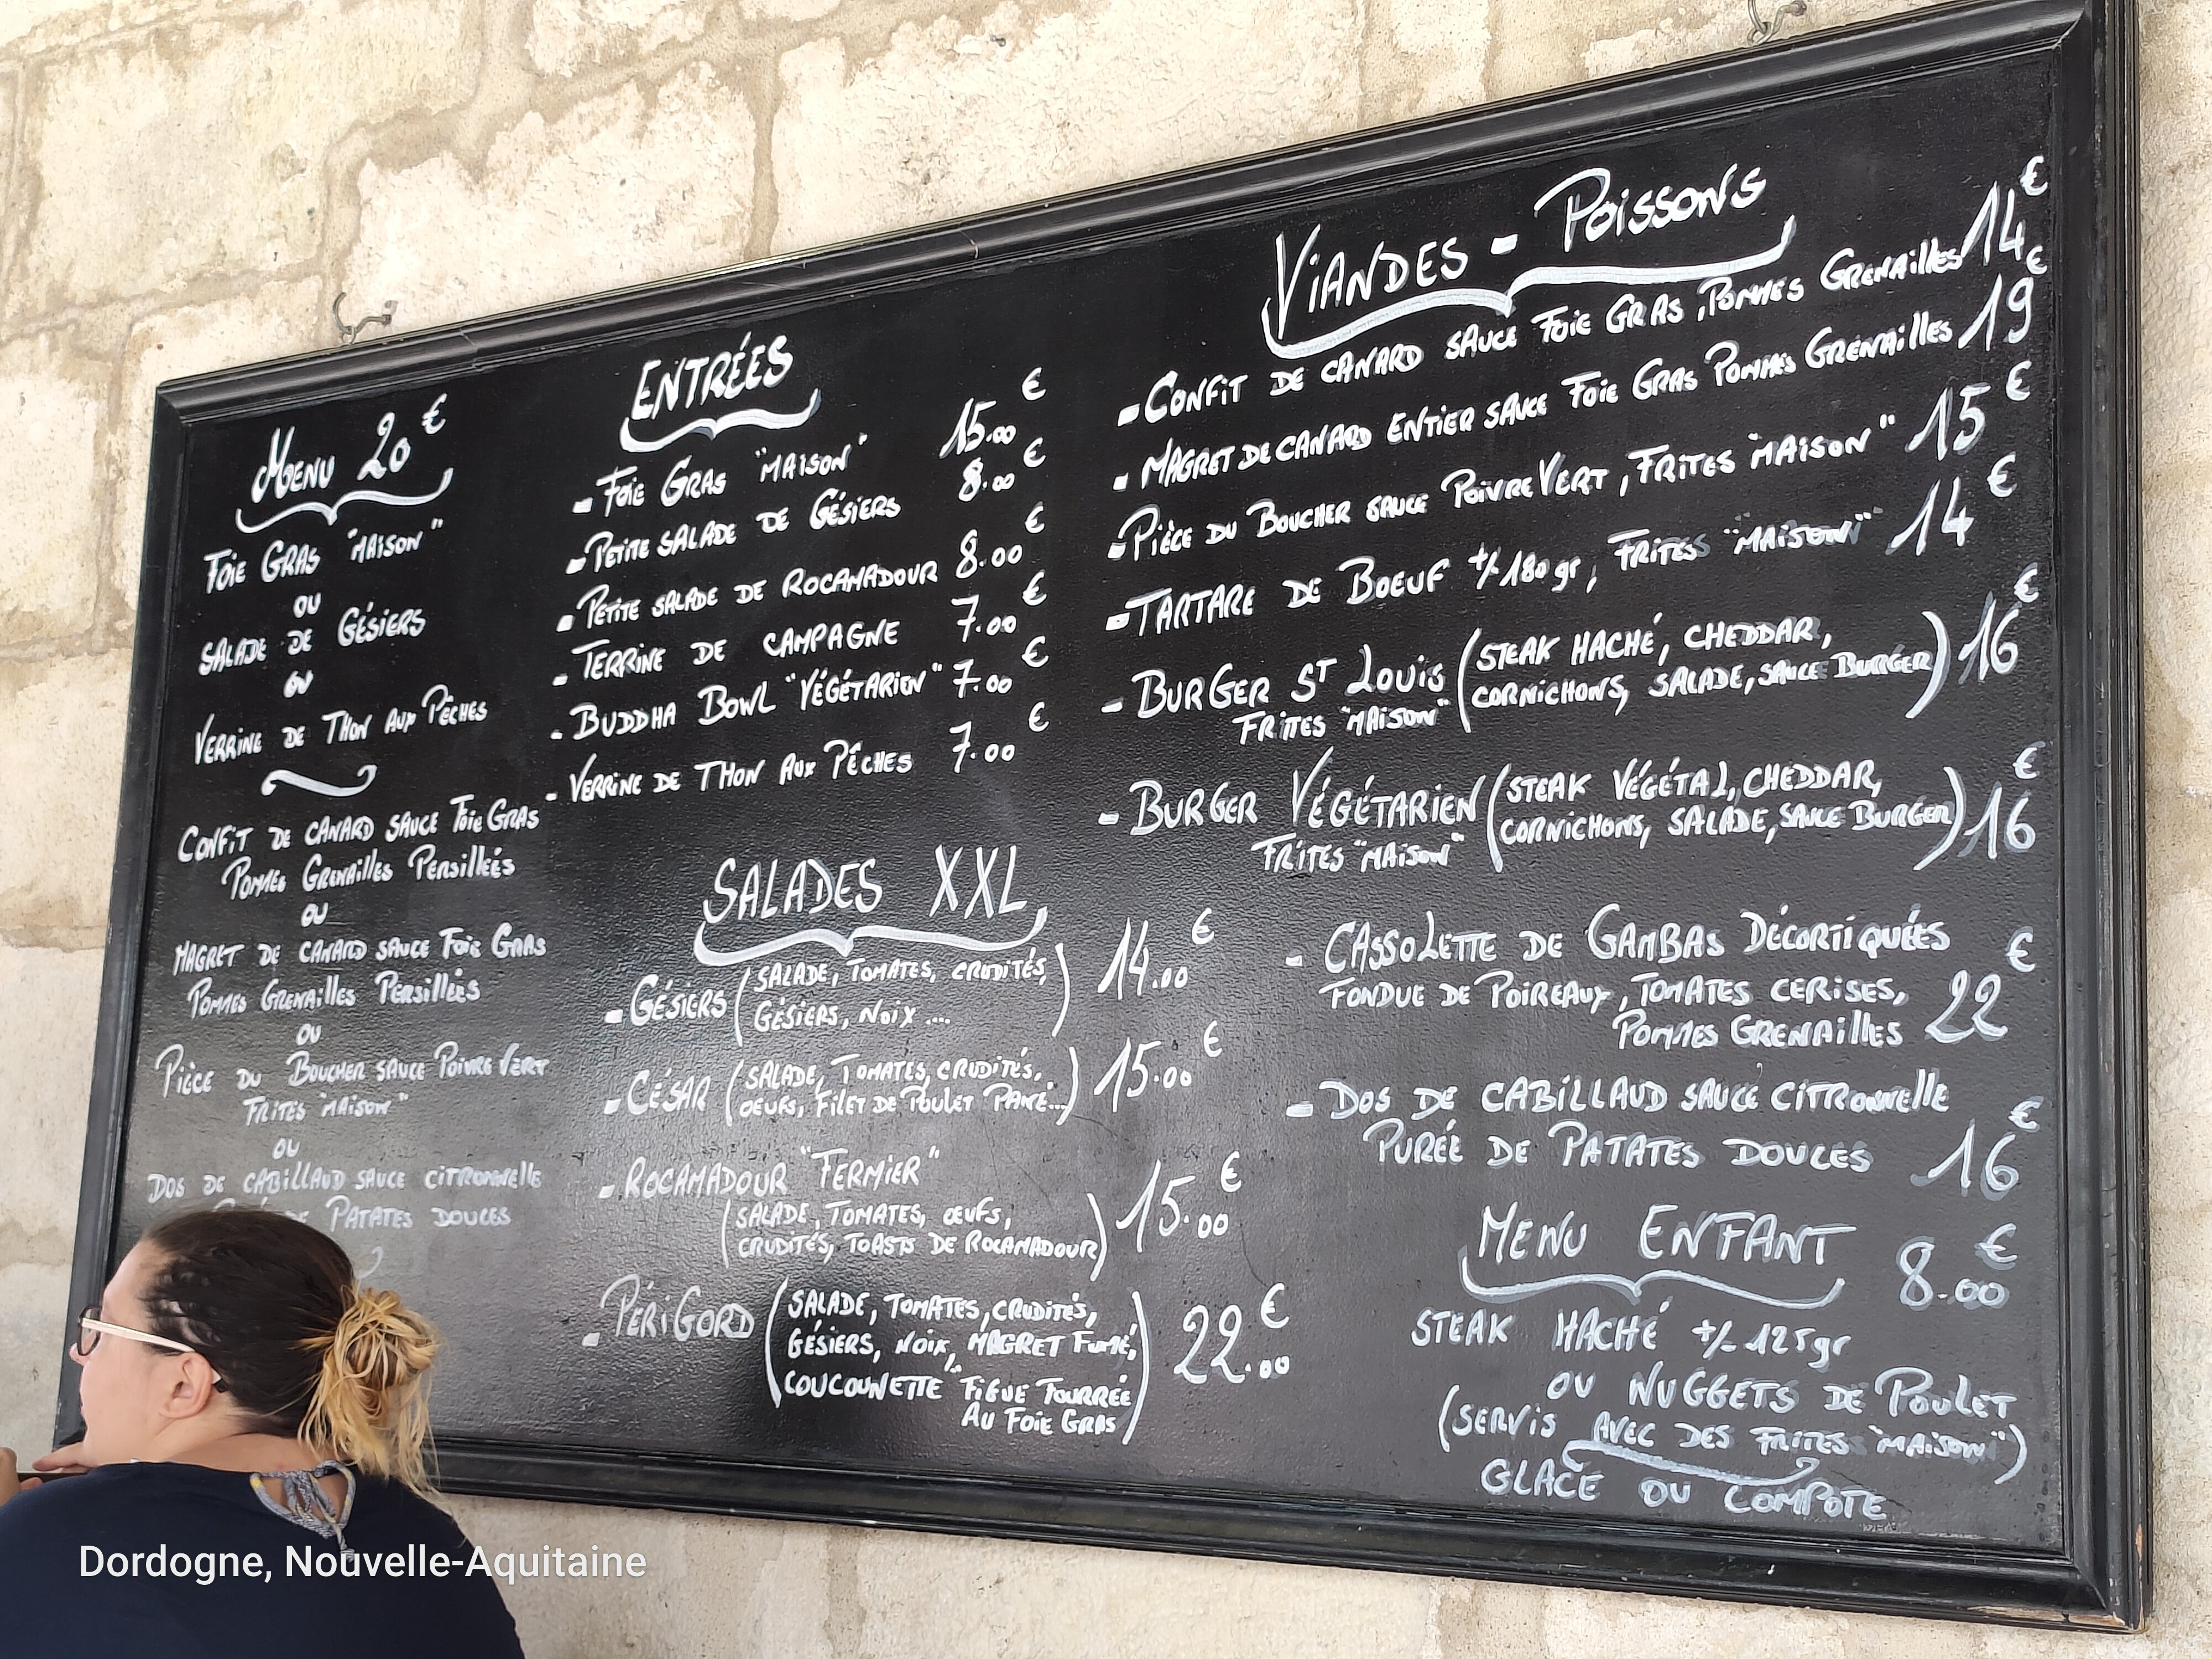 Menu 20€
Foie Gras "Maison"
ou
Salade de Gésiers
ou
Verrine de Thon aux Pêches
Confit de canard sauce Foie Gras
Pommes Grenailles Persillées
ou
Magret de canard sauce Foie Gras
Pommes Grenailles Persillées
ou
Pièce du Boucher sauce Poivre Vert
Frites "maison"
ou
Dos de cabillaud sauce citronnelle
Patates douces
Entrées
- Foie Gras "maison" 15.00€
- Petite salade de Gésiers 8.00€
- Petite salade de Rocamadour 8.00€
- Terrine de campagne 7.00€
- Buddha Bowl "Végétarien" 7.00€
- Verrine de Thon aux Pêches 7.00€
Salades XXL
- Gésiers (salade, tomates, crudités,
Gésiers, noix ....) 14.00€
- César (salade, tomates, crudités,
oeufs, filet de poulet pané...) 15.00€
- Rocamadour "Fermier"
(salade, tomates, œufs,
crudités, toasts de Rocamadour) 15.00€
- Périgord (salade, tomates, crudités,
Gésiers, noix, magret fumé,
"coucounette" figue fourrée
au foie gras) 22.00€
Viandes - Poissons
- Confit de canard sauce Foie Gras, Pommes Grenailles 14€
- Magret de canard entier sauce Foie Gras Pommes Grenailles 19€
- Pièce du Boucher sauce Poivre Vert, Frites "maison" 15€
- Tartare de Boeuf +/- 180 gr, Frites "maison" 14€
- Burger St Louis (steak haché, cheddar,
cornichons, salade, sauce Burger) 16€
Frites "maison"
- Burger Végétarien (steak végétal, cheddar,
cornichons, salade, sauce Burger) 16€
Frites "maison"
- Cassolette de Gambas Décortiquées
Fondue de Poireaux, tomates cerises,
Pommes Grenailles 22€
- Dos de cabillaud sauce citronnelle
Purée de patates douces 16€
Menu Enfant 8.00€
Steak haché +/- 125gr
ou nuggets de Poulet
(servis avec des frites "maison")
Glace ou compote
Dordogne, Nouvelle-Aquitaine